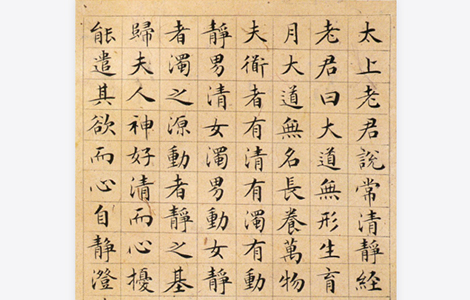 太上老君說常清靜經
老君曰大道無形生育
月大道無名長養萬物
夫衜者有清有濁有動
靜男清女濁男動女靜
者濁之源動者靜之基
歸夫人神好清而心擾
能遣其欲而心自靜澄